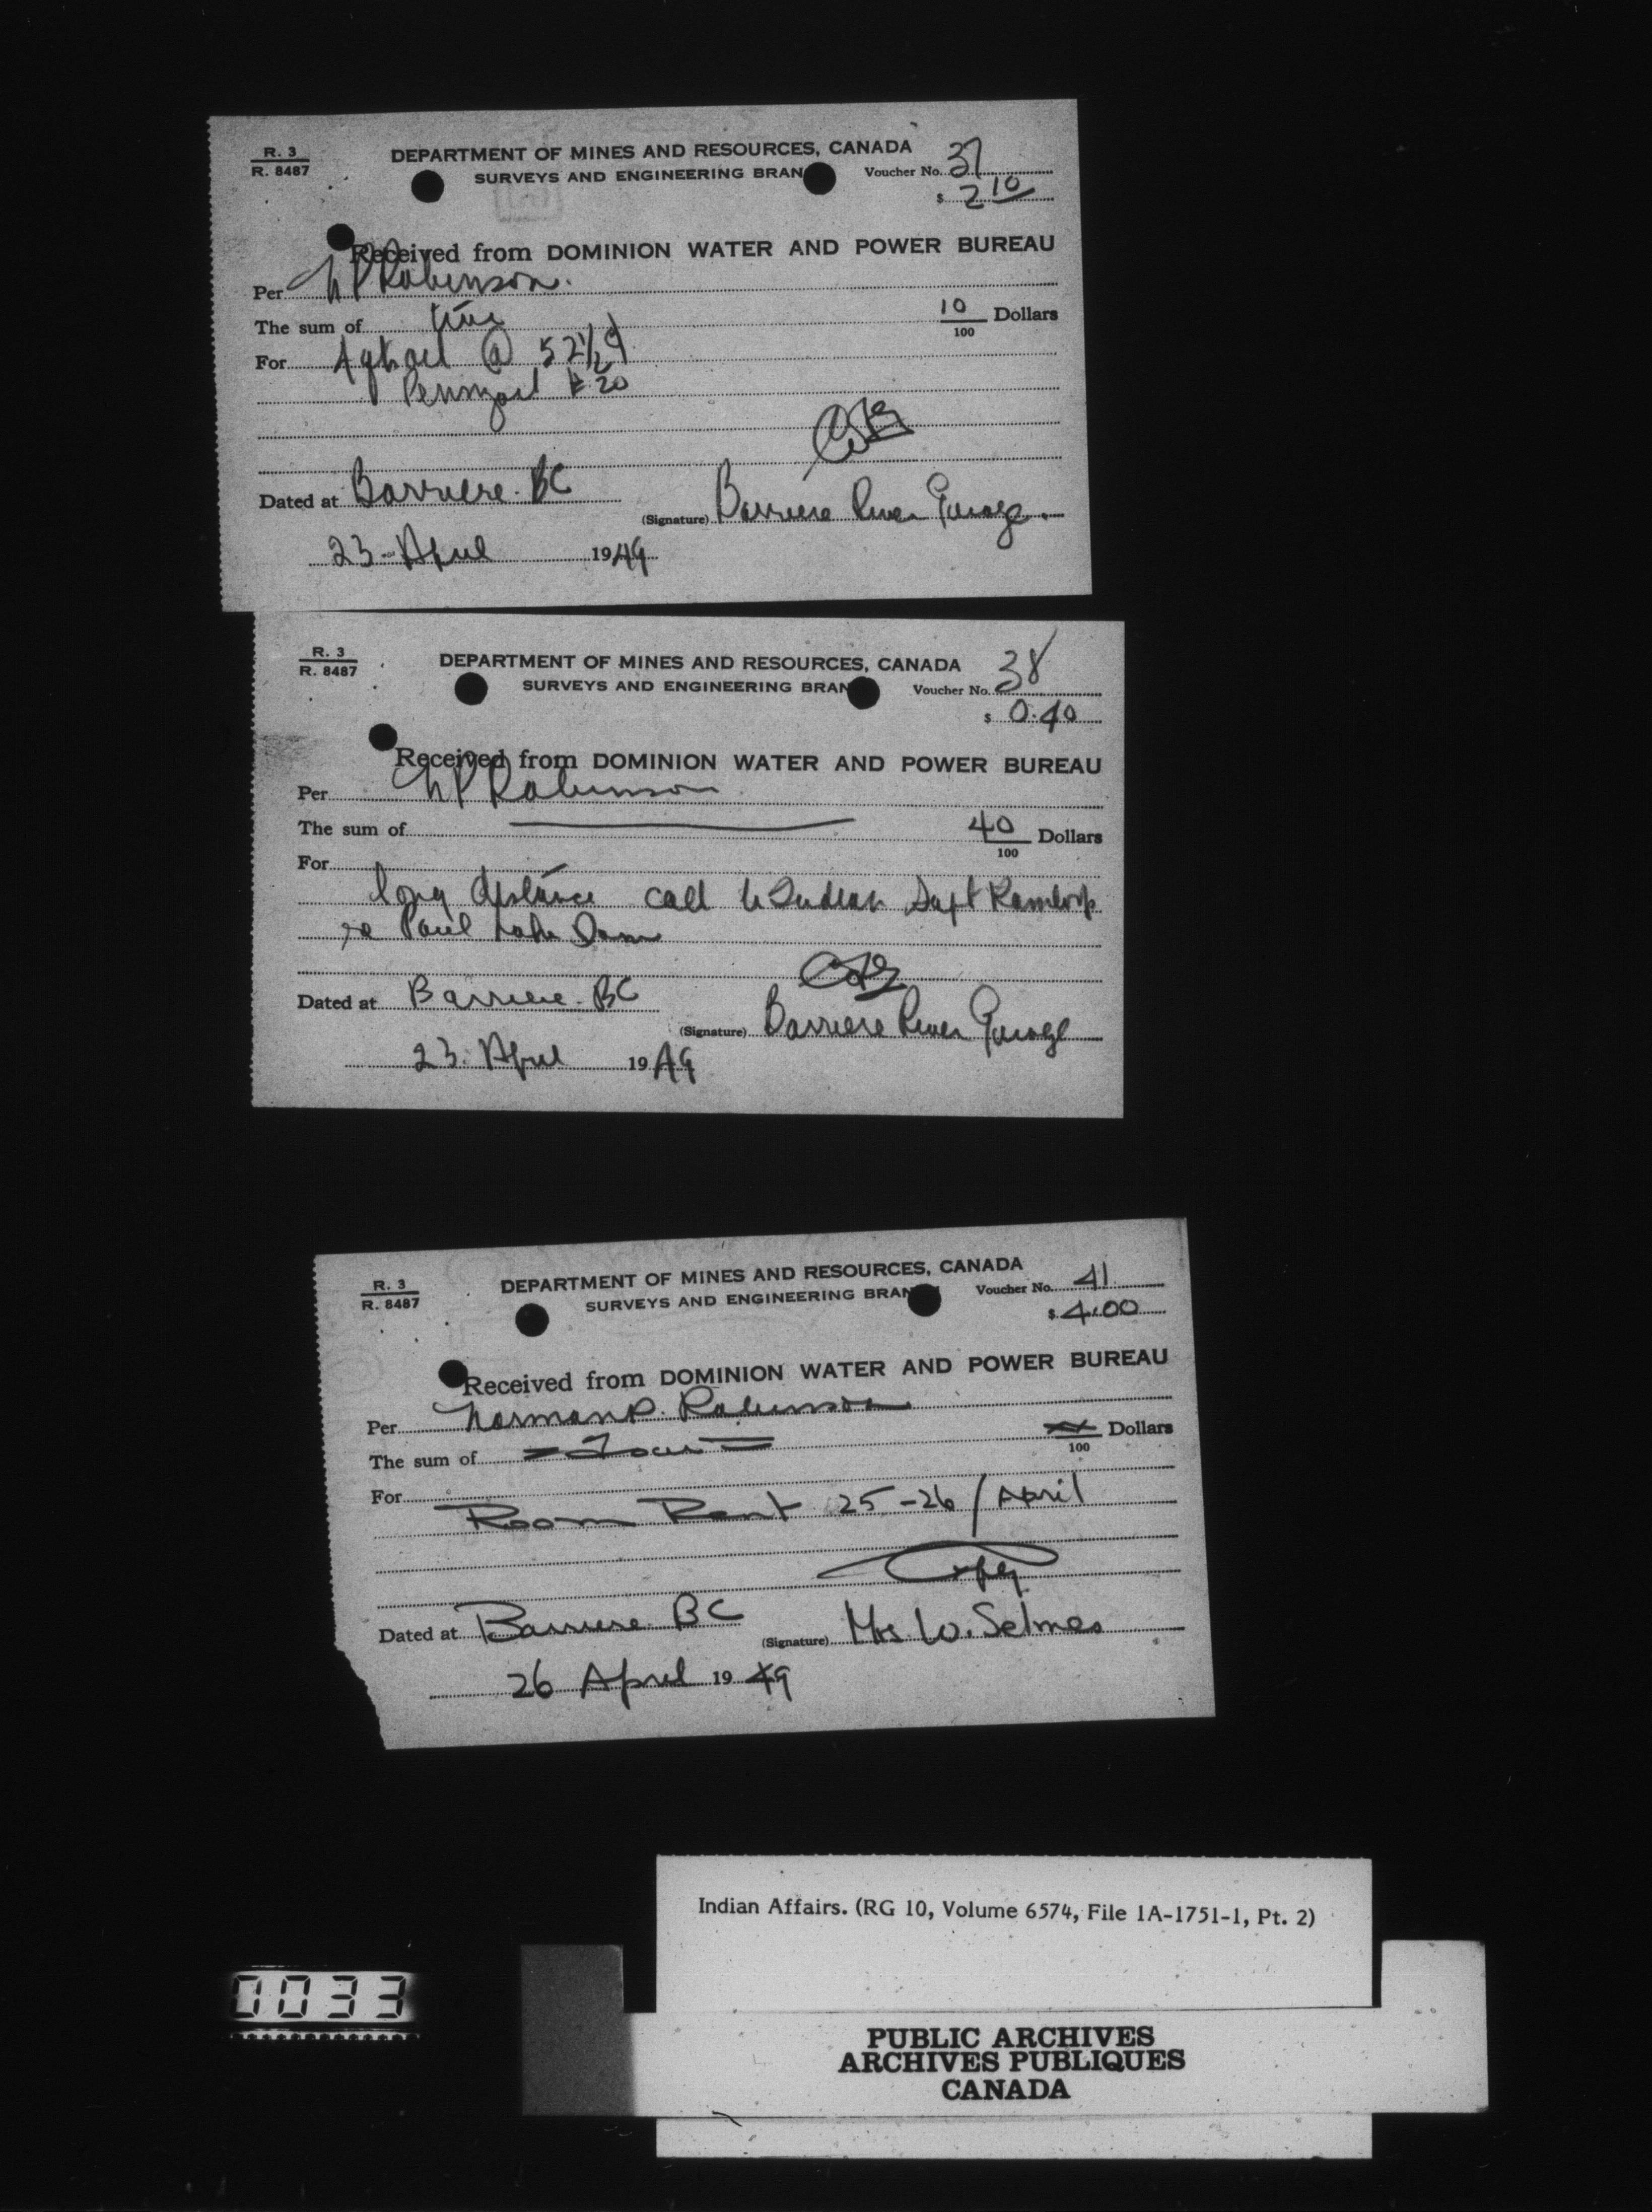 R. 3
R. 8487
DEPARTMENT OF MINES AND RESOURCES, CANADA
SURVEYS AND ENGINEERING BRAN
Voucher No. 37
$ 2 10
Received from DOMINION WATER AND POWER BUREAU
Per N P Robinson.
The sum of two 10/100 Dollars
For 4 qts oil @ 52 1/2 ¢
Pennzoil # 20
Dated at Barriere. BC
(Signature) Barriere River Garage.
23 - April 1949
R. 3
R. 8487
DEPARTMENT OF MINES AND RESOURCES, CANADA
SURVEYS AND ENGINEERING BRAN
Voucher No. 38
$ 0.40
Received from DOMINION WATER AND POWER BUREAU
Per N P Robinson
The sum of 40/100 Dollars
For
long distance call to Indian Supt Kamloops
re Paul Lake Dam
Dated at Barriere. BC
(Signature) Barriere River Garage
23. April 1949
R. 3
R. 8487
DEPARTMENT OF MINES AND RESOURCES, CANADA
SURVEYS AND ENGINEERING BRAN
Voucher No. 41
$ 4.00
Received from DOMINION WATER AND POWER BUREAU
Per Norman P. Robinson
The sum of = Four = xx/100 Dollars
For
Room Rent 25-26 / April
Dated at Barriere. BC
(Signature) Mrs W. Selmes
26 April 1949
Indian Affairs. (RG 10, Volume 6574, File 1A-1751-1, Pt. 2)
0033
PUBLIC ARCHIVES
ARCHIVES PUBLIQUES
CANADA